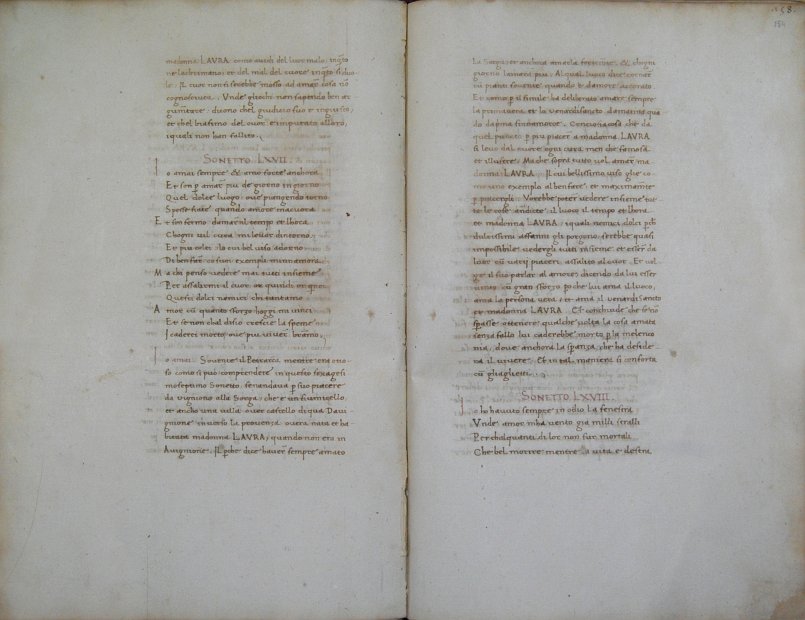 madonna LAURA come autor del suo malo
ne la biasimano: et del mal del cuore
le. Il cuor non si serebbe mosso ad amar cosa nō
cognosciuta. Vnde gliochi non sapendo ben ar
gumētare: dicono chel giudicio suo e ingiusto,
et chel biasimo del cuor e imputato alloro,
iquali non han fallito.
SONETTO LXVII.
Io amai sempre & amo forte anchora
Et son p̄ amar piu de giorno in giorno
Quel dolce luogo, oue piangendo torno
Spesse fiate quando amore maccora
Et son fermo damar il tempo et lhora
Chogni uil cura mi leuar dintorno,
Et piu colei lo cui bel uiso adorno
Di ben far co suoi exempli minnamora.
Ma chi penso uedere mai tutti insieme
Per assalirmi al cuor
Questi dolci nemici chi tantamo
Amor cū quanto sforzo hoggi mi uinci.
Et se non chal disio cresce la speme
I caderei morto, oue piu uiuer bramo.
Io amai. Souente il Petrarca mentre era ocio
so como si puo comprendere in questo sexagesi
moseptimo Sonetto, senandaua p̄ suo piacere
da uignono alla Sorga, che e un fiumicello,
et ancho una uilla ouer castello di qua Daui
gnione inuerso la prouenza oue era nata et ha
bitata madonna LAURA, quando non era in
Auignione. Il p̄che dice hauer sempre amato
158.
154
La Sorga, et anchora amarla fortemente, & chogni
giorno lamara piu. Al qual luoco dice tornar
cū pianti souente quando e damore accorato
Et como p̄ il simile ha deliberato amar sempre
la primauera et la uenardi santo
do da prima sinnamoroe. Conciosia cosa che da
quel punto p̄ piu piacer a madonna LAURA
si leuo dal cuore ogni cura, men che famosa
et illustre. Ma che sopra tutto uol amar ma
donna LAURA. Il cui bellissimo uiso glie co
exemplo al ben fare, et maximamente
Vorebbe poter uedere insieme tut
te le cose andicte, il luoco il tempo et lhora
et madonna LAURA, iquali nemici dolci
dulcissimi affanni gli porgono, serebbe quasi
impossibile uedergli tutti insieme, et esser da
loro cū uarij piaceri, assalito al cuor. Et uol
ge il suo parlar al amore, dicendo da lui esser
uinto cū gran sforzo. p̄o che lui ama il luoco,
ama la persona uera, et ama il uenardi santo
et madonna LAURA. Et conchiude che se nō
sp̄asse ottenere qualche uolta la cosa amata
senza fallo lui caderebbe morto p̄ la melenco
nia, doue anchora la sp̄anza, che ha deside
ra il uiuere. Et in tal maniera si conforta
cū gli aflicti.
SONETTO LXVIII.
Io ho hauuto sempre in odio la fenestra
Vnde amor mha uento gia milli stralli
Per chalquanti di lor non fur mortali
Che bel morire mentre la uita e destra